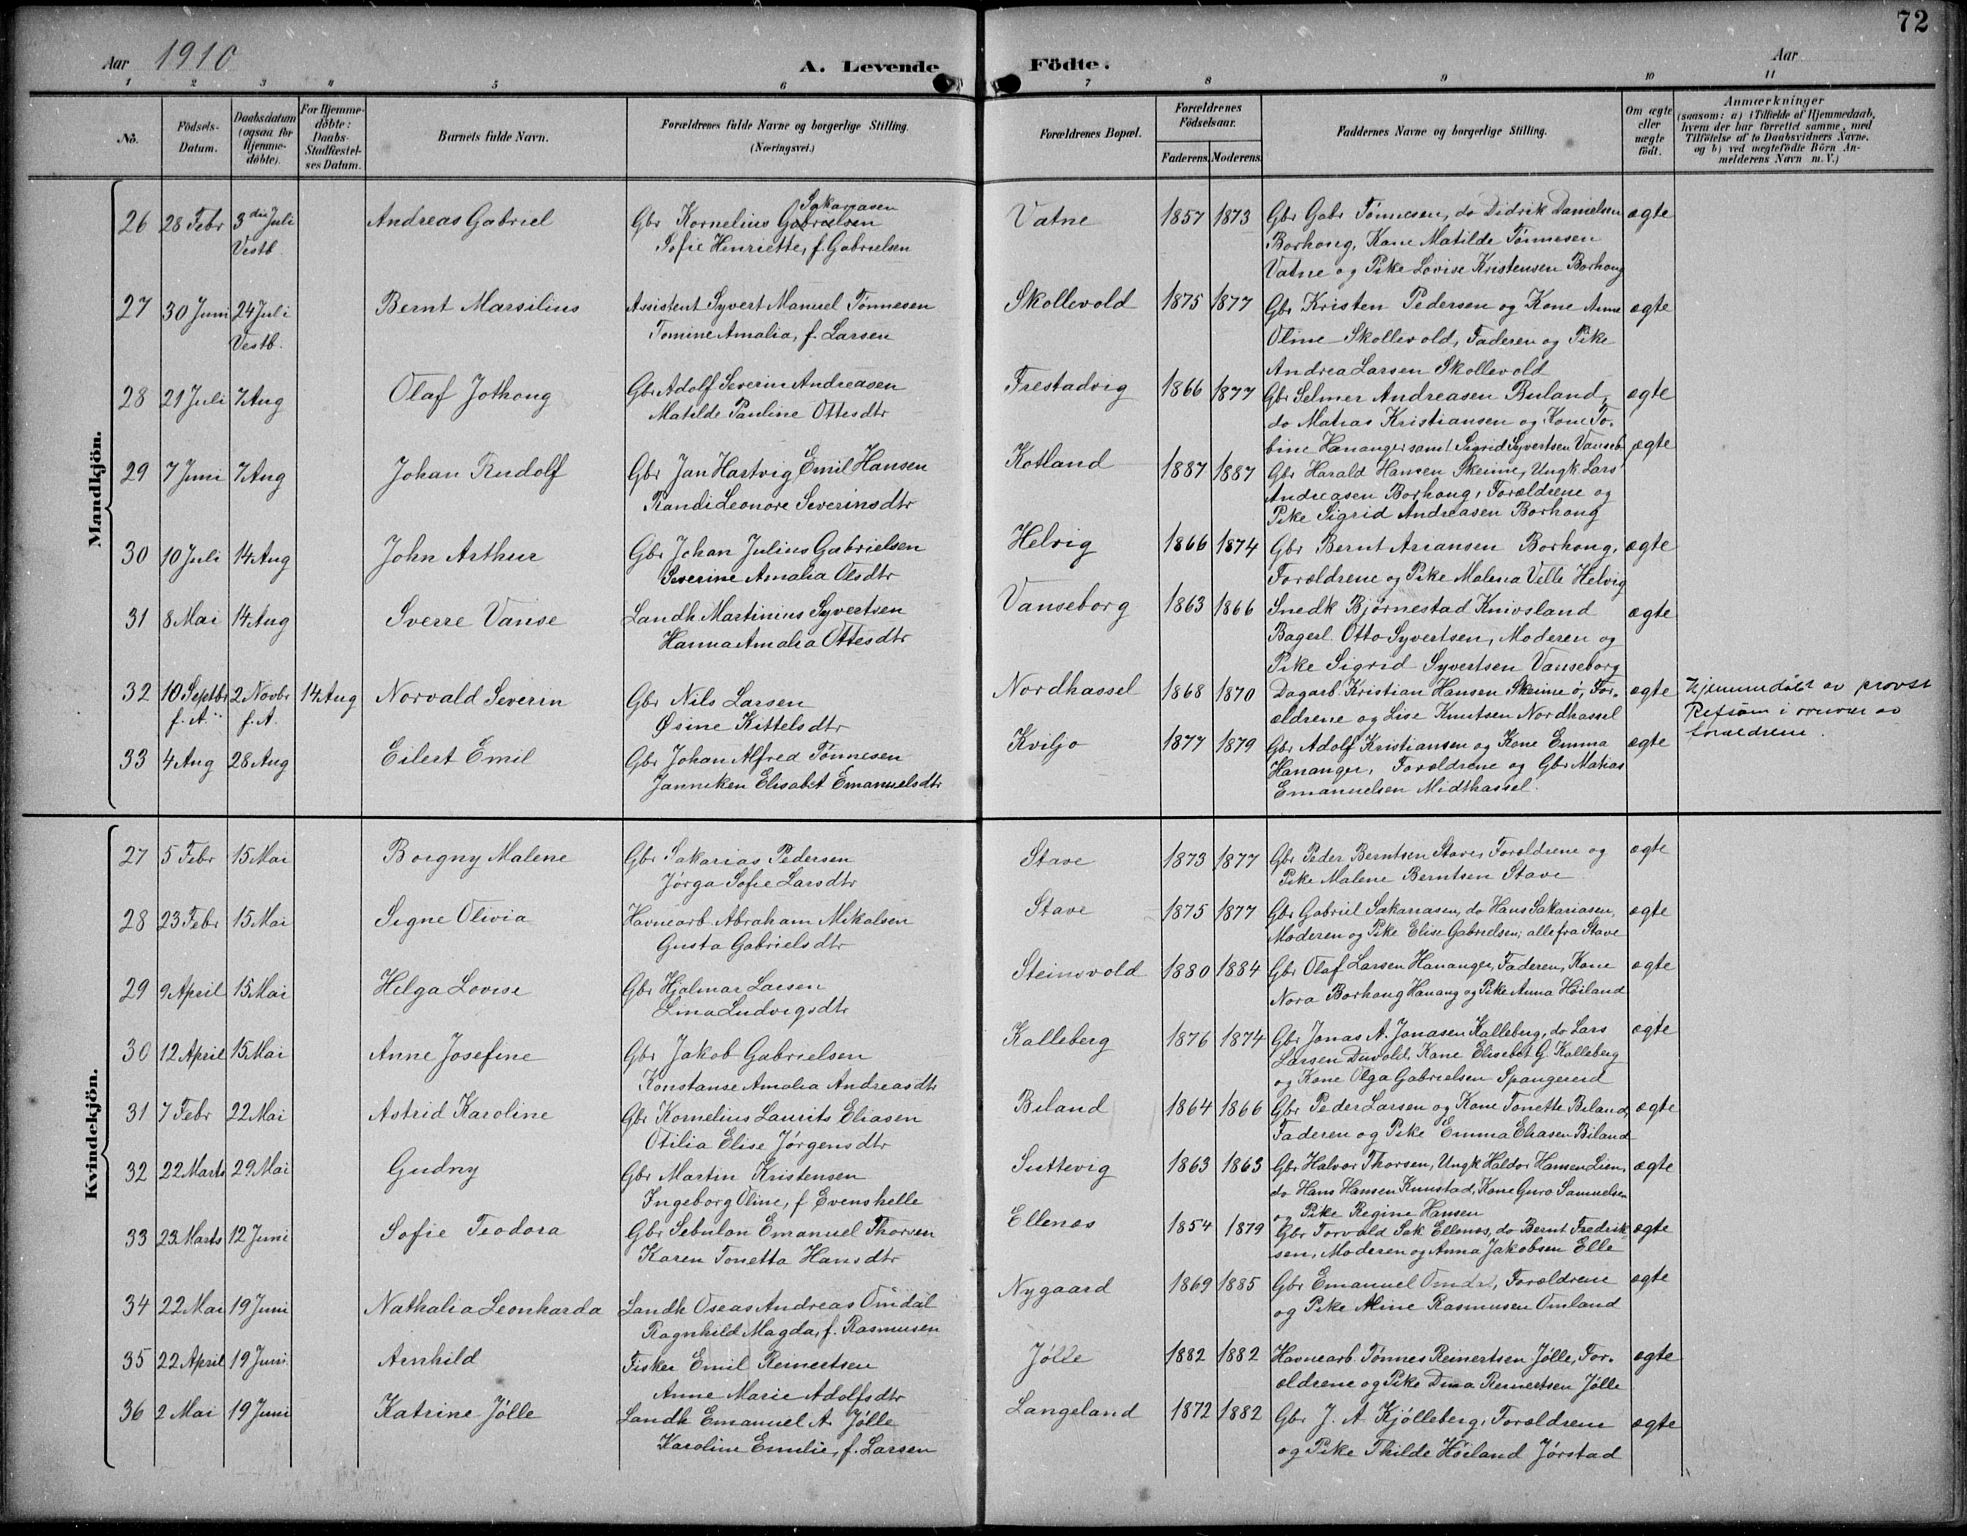 72
Aar 1910 A. Levende Födte. Aar
1 2 3 4 5 6 7 8 9 10 11
No. Födsels-Datum. Daabsdatum (ogsaa for Hjemme-döbte). For Hjemme-döbte: Daabs-Stadfæstel-ses Datum. Barnets fulde Navn. Forældrenes fulde Navne og borgerlige Stilling. (Næringsvei.) Forældrenes Bopæl. Forældrenes Födselsaar. Faderens. Moderens. Faddernes Navne og borgerlige Stilling. Om ægte eller uægte födt. Anmærkninger (saasom: a) i Tilfælde af Hjemmedaab, hvem der har forrettet samme, med Tilföielse af to Daabsvidners Navne. og b) ved uægtefödte Börn An-melderens Navn m. V.)
Mandkjön.
26 28 Febr 3die Juli Andreas Gabriel Gbr Kornelius Gabrielsen Sakariasen Vatne 1857 1873 Gbr Gabr Tønnesen, do Didrik Danielsen ægte
Vestb. Sofie Henriette, f. Gabrielsen Borhoug, Kone Matilde Tønnesen
Vatne og Pike Lovise Kristensen Borhoug
27 30 Juni 24 Juli Bernt Marsilius Assistent Syvert Manuel Tønnesen Skollevold 1875 1877 Gbr Kristen Pedersen og Kone Anne ægte
Vestb. Tomine Amalia, f. Larsen Oline Skollevold, Faderen og Pike
Andrea Larsen Skollevold
28 21 Juli 7 Aug Olaf Jothong Gbr Adolf Severin Andreasen Frestadvig 1866 1877 Gbr Selmer Andreasen Buland, ægte
Matilde Pauline Ottesdtr do Matias Kristiansen og Kone To-
bine Hananger samt Sigrid Syvertsen Vanseb
29 7 Juni 7 Aug Johan Rudolf Gbr Jan Hartvig Emil Hansen Kotland 1887 1887 Gbr Harald Hansen Skeime, Ungk Lars ægte
Randi Leonore Severinsdtr Andreasen Borhoug, Forældrene og
Pike Sigrid Andreasen Borhoug
30 10 Juli 14 Aug John Arthur Gbr Johan Julius Gabrielsen Helvig 1866 1874 Gbr Bernt Ariansen Borhoug, ægte
Severine Amalia Olsdtr Forældrene og Pike Malena Velle Helvig
31 8 Mai 14 Aug Sverre Vanse Landh Martinius Syvertsen Vanseborg 1863 1866 Snedk Bjørnestad Knivsland ægte
Hanna Amalia Ottesdtr Bagerl. Otto Syvertsen, Moderen og
Pike Sigrid Syvertsen Vanseborg
32 10 Septbr 2 Novbr 14 Aug Norvald Severin Gbr Nils Larsen Nordhassel 1868 1870 Dagarb. Kristian Hansen Skeime ø, For- ægte Hjemmedøbt av provst
f. A. f. A. Øsine Kittelsdtr ældrene og Lise Knutsen Nordhassel Refsum i nærvær av
forældrene.
33 4 Aug 28 Aug Eilert Emil Gbr Johan Alfred Tønnesen Kviljo 1877 1879 Gbr Adolf Kristiansen og Kone Emma ægte
Janniken Elisabet Emanuelsdtr Hananger, Forældrene og Gbr Matias
Emanuelsen Midthassel.
Kvindekjön.
27 5 Febr 15 Mai Borgny Malene Gbr Sakarias Pedersen Stave 1873 1877 Gbr Peder Berntsen Stave, Forældrene og ægte
Jørga Sofie Larsdtr Pike Malene Berntsen Stave
28 23 Febr 15 Mai Signe Olivia Havnearb. Abraham Mikalsen Stave 1875 1877 Gbr Gabriel Sakariasen, do Hans Sakariasen, ægte
Gusta Gabrielsdtr Moderen og Pike Elise Gabrielsen, alle fra Stave
29 9 April 15 Mai Helga Lovise Gbr Hjalmar Larsen Steinsvold 1880 1884 Gbr Olaf Larsen Hananger, Faderen, Kone ægte
Lina Ludvigsdtr Nora Borhoug Hanang og Pike Anna Høiland
30 12 April 15 Mai Anne Josefine Gbr Jakob Gabrielsen Kalleberg 1876 1874 Gbr Jonas A. Jonasen Kalleberg, do Lars ægte
Konstanse Amalia Andreasdtr Larsen Duvold, Kone Elisebet G. Kalleberg
og Kone Olga Gabrielsen Spangereid
31 7 Febr 22 Mai Astrid Karoline Gbr Kornelius Laurits Eliasen Biland 1864 1866 Gbr Peder Larsen og Kone Tonette Biland, ægte
Otilia Elise Jørgensdtr Faderen og Pike Emma Eliasen Biland
32 22 Marts 29 Mai Gudny Gbr Martin Kristensen Suttevig 1863 1863 Gbr Halvor Thorsen, Ungk Haldor Hansen Lien, ægte
Ingeborg Oline, f. Evenshelle do Hans Hansen Kunstad, Kone Guro Samuelsen
og Pike Regine Hansen
33 23 Marts 12 Juni Sofie Teodora Gbr Sebulon Emanuel Thorsen Ellenes 1854 1879 Gbr Torvald Sak Ellenes, do Bernt Fredrik- ægte
Karen Tonetta Hansdtr sen, Moderen og Anna Jakobsen Elle
34 22 Mai 19 Juni Nathalia Leonharda Landh Oseas Andreas Omdal Nygaard 1869 1885 Gbr Emanuel Omdal, Forældrene ægte
Ragnhild Magda, f. Rasmusen og Pike Aline Rasmusen Omland
35 22 April 19 Juni Arnhild Fisker Emil Reinertsen Jølle 1882 1882 Havnearb. Tønnes Reinertsen Jølle, For- ægte
Anne Marie Adolfsdtr ældrene og Pike Dina Reinertsen Jølle
36 2 Mai 19 Juni Katrine Jølle Landh Emanuel A. Jølle Langeland 1872 1882 Gbr J. A. Kjølleberg, Forældrene ægte
Karoline Emilie, f. Larsen og Pike Thilde Høiland Jørstad